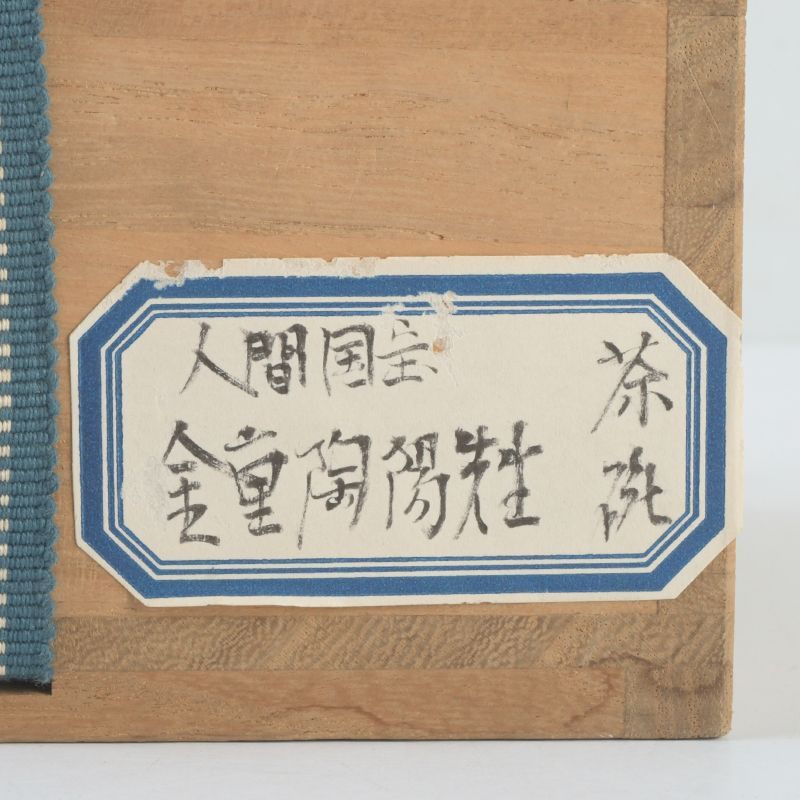 人間国宝
金重陶陽先生
茶碗